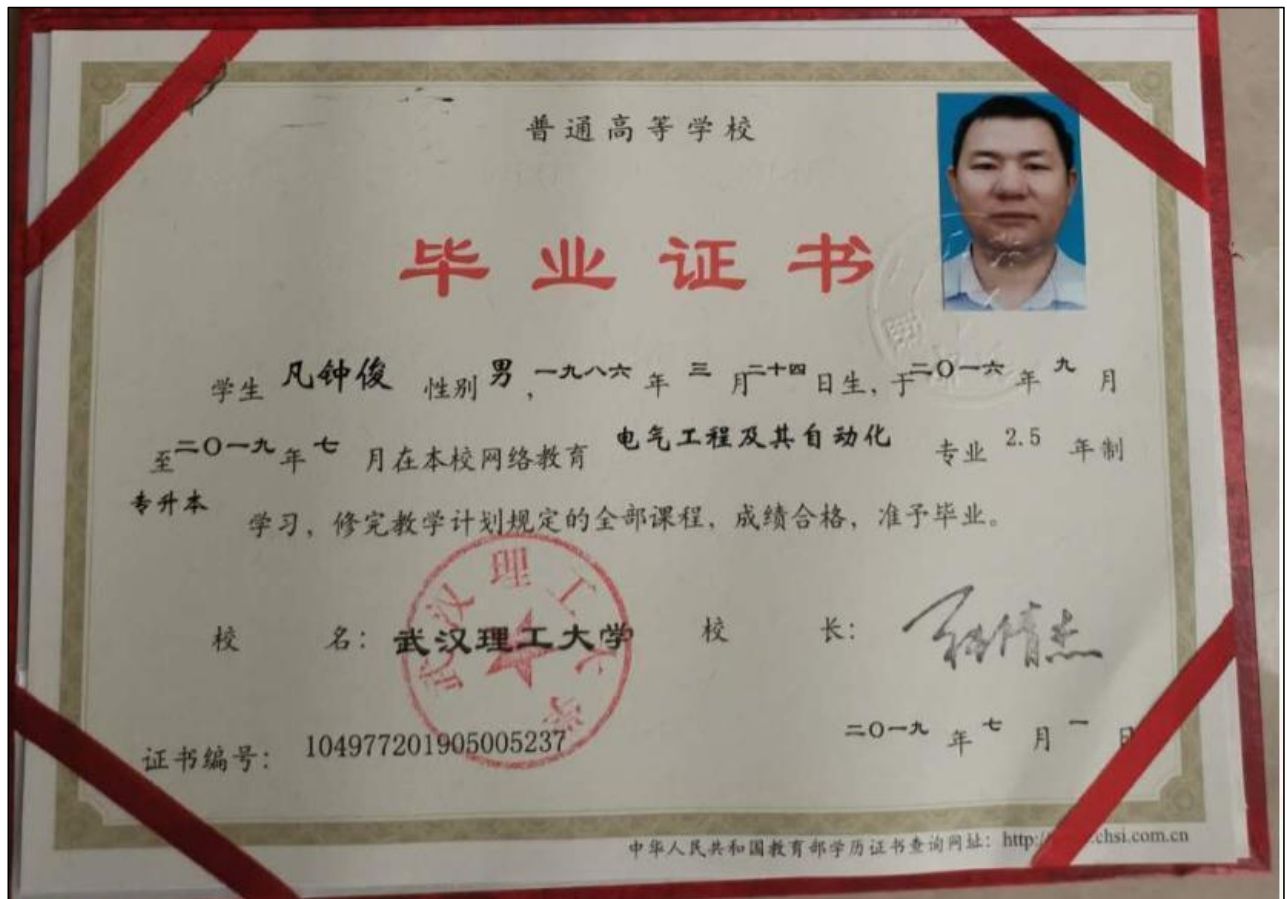 普通高等学校
毕业证书
学生 凡钟俊 性别 男，一九八六 年 三 月二十四 日生，于二〇一六 年 九 月
至二〇一九 年 七 月在本校网络教育 电气工程及其自动化 专业 2.5 年制
专升本 学习，修完教学计划规定的全部课程，成绩合格，准予毕业。
武汉理工大学
校 名：武汉理工大学 校 长：
证书编号：104977201905005237 二〇一九 年 七 月 一 日
中华人民共和国教育部学历证书查询网址：http:// chsi.com.cn